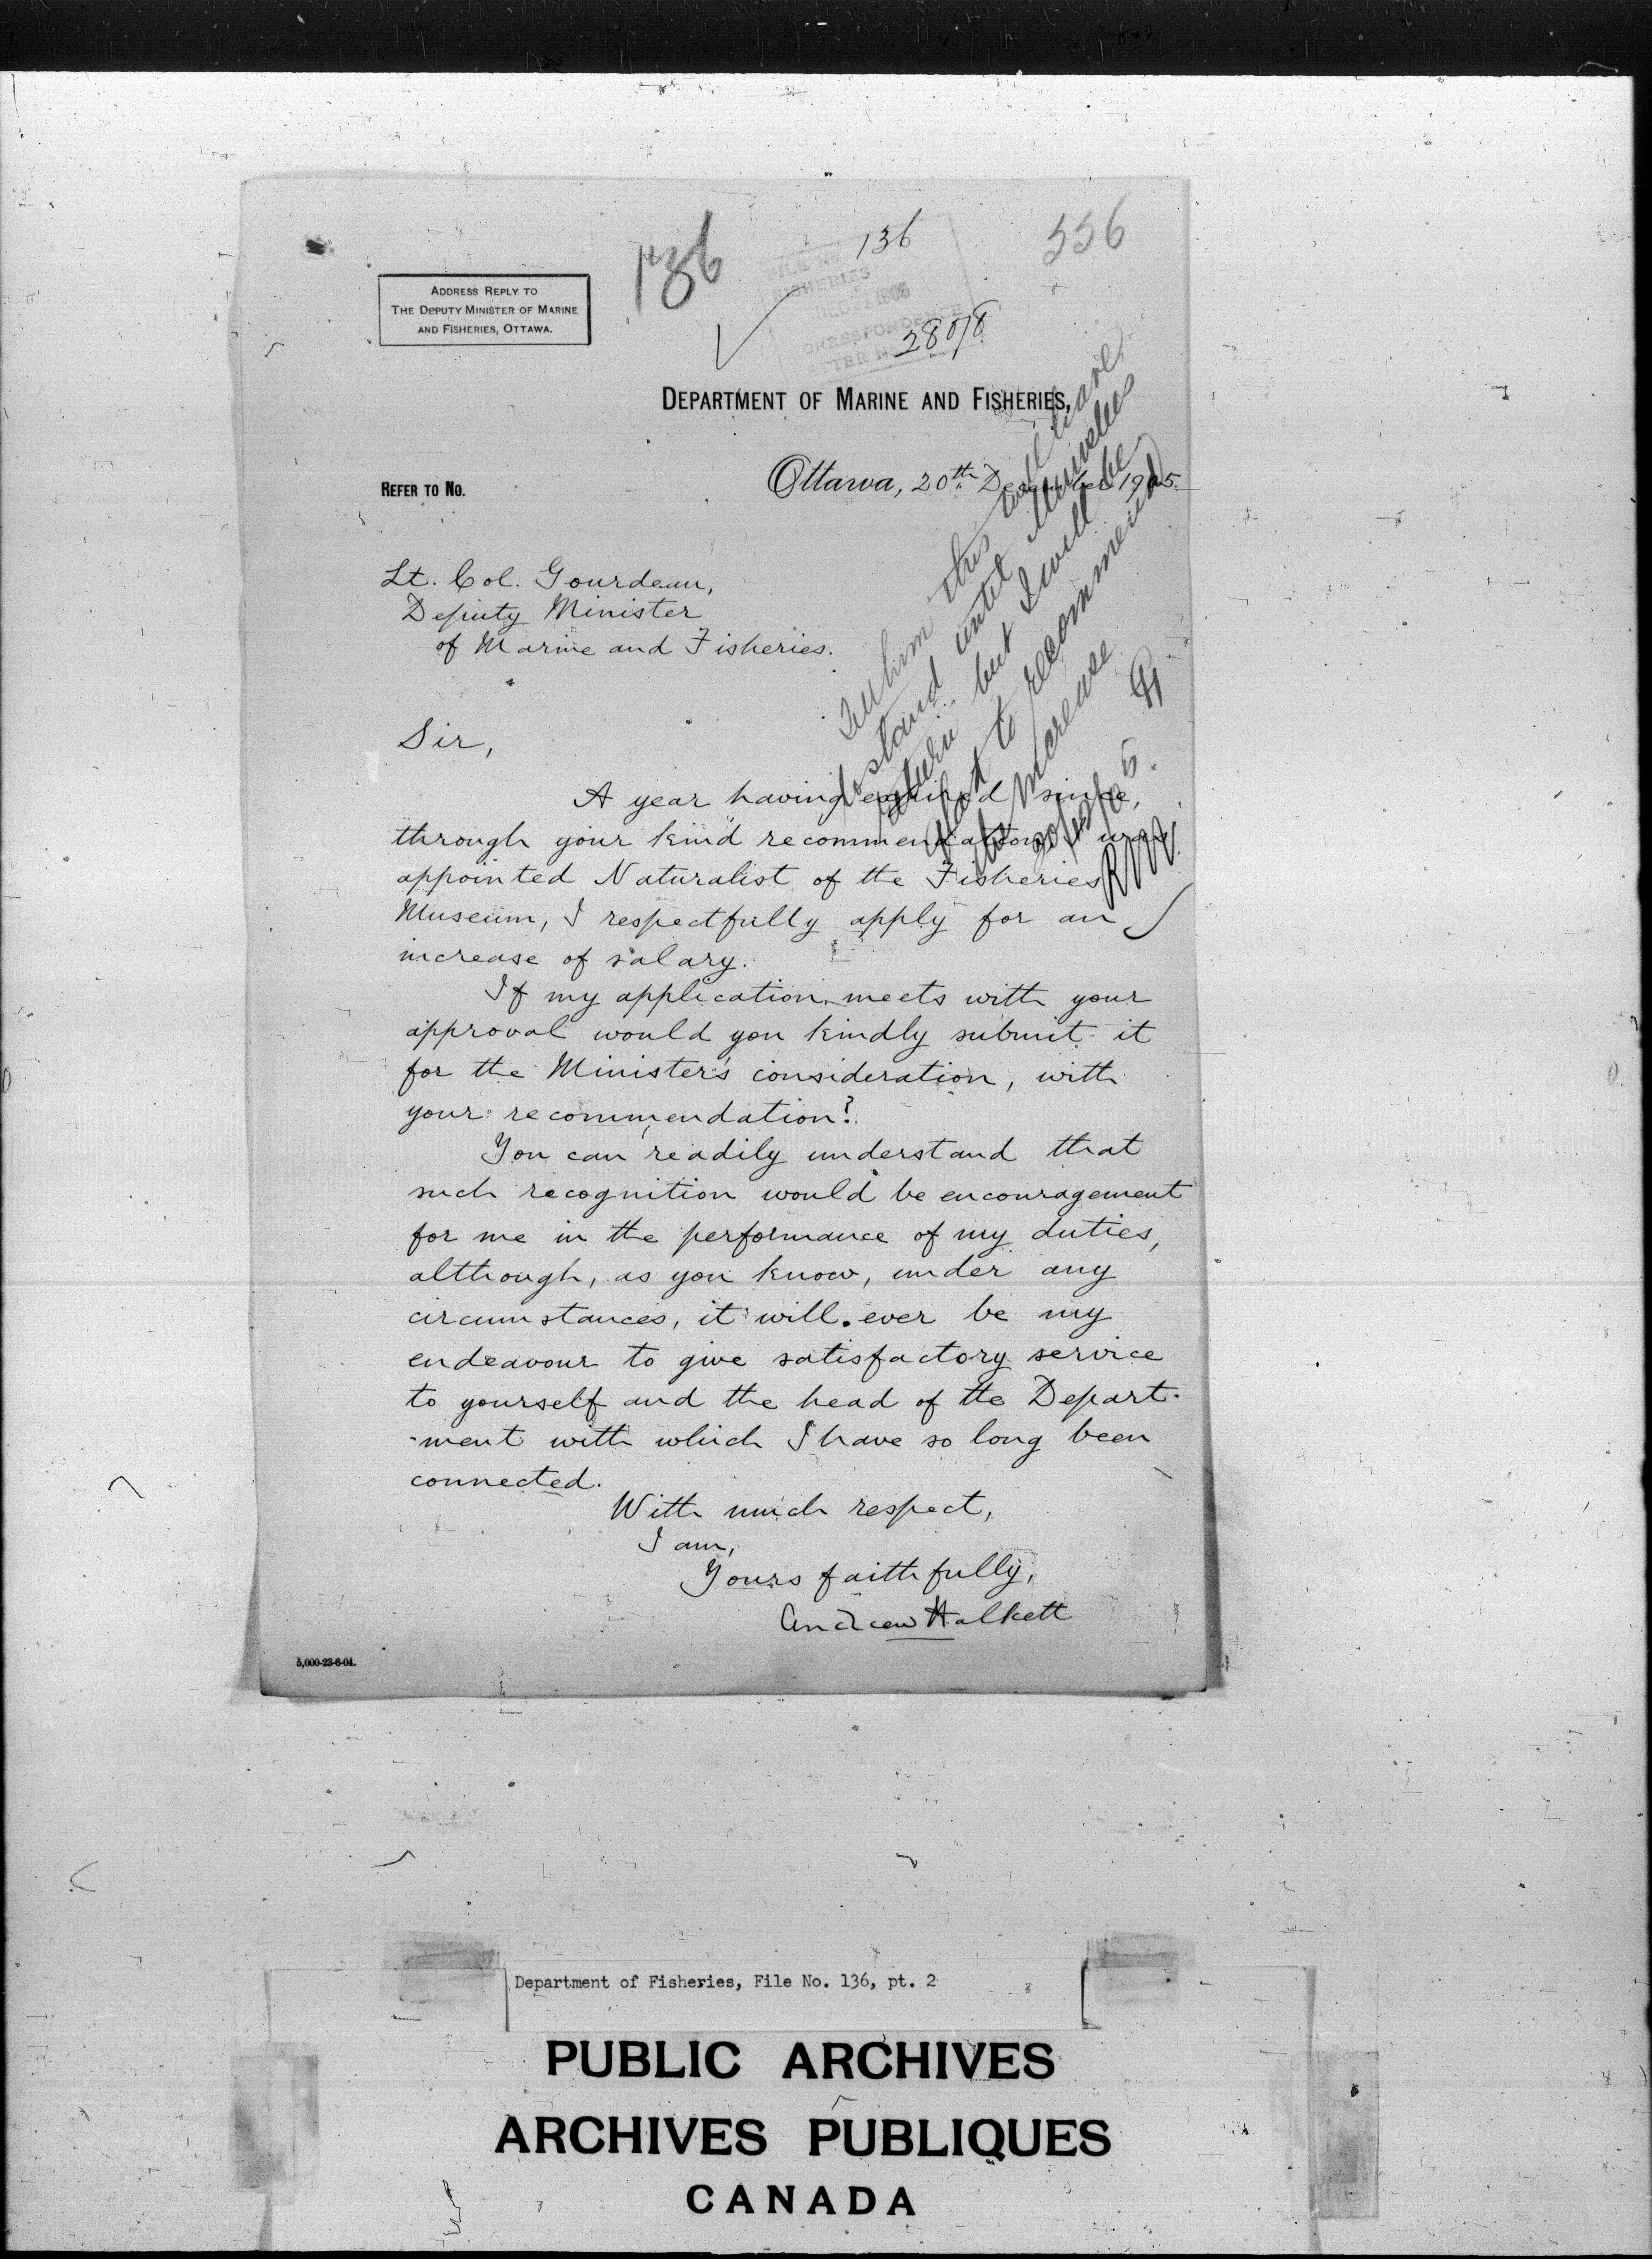 136
136
556
ADDRESS REPLY TO
THE DEPUTY MINISTER OF MARINE
AND FISHERIES, OTTAWA.
FILE No
FISHERIES
CORRESPONDENCE
DEPARTMENT OF MARINE AND FISHERIES,
REFER TO No.
Ottawa, 20th December 1905.
Lt. Col. Gourdeau,
Deputy Minister
of Marine and Fisheries.
Tell him this will have
to stand until Ministers
return but I will be
glad to recommend
his increase
20/12/05.
Sir,
A year having expired since,
through your kind recommendation I was
appointed Naturalist of the Fisheries
Museum, I respectfully apply for an
increase of salary.
If my application meets with your
approval would you kindly submit it
for the Minister's consideration, with
your recommendation?
You can readily understand that
such recognition would be encouragement
for me in the performance of my duties,
although, as you know, under any
circumstances, it will ever be my
endeavour to give satisfactory service
to yourself and the head of the Depart-
-ment with which I have so long been
connected.
With much respect,
I am,
Yours faithfully,
Andrew Halkett
5,000-23-6-04.
Department of Fisheries, File No. 136, pt. 2
PUBLIC ARCHIVES
ARCHIVES PUBLIQUES
CANADA